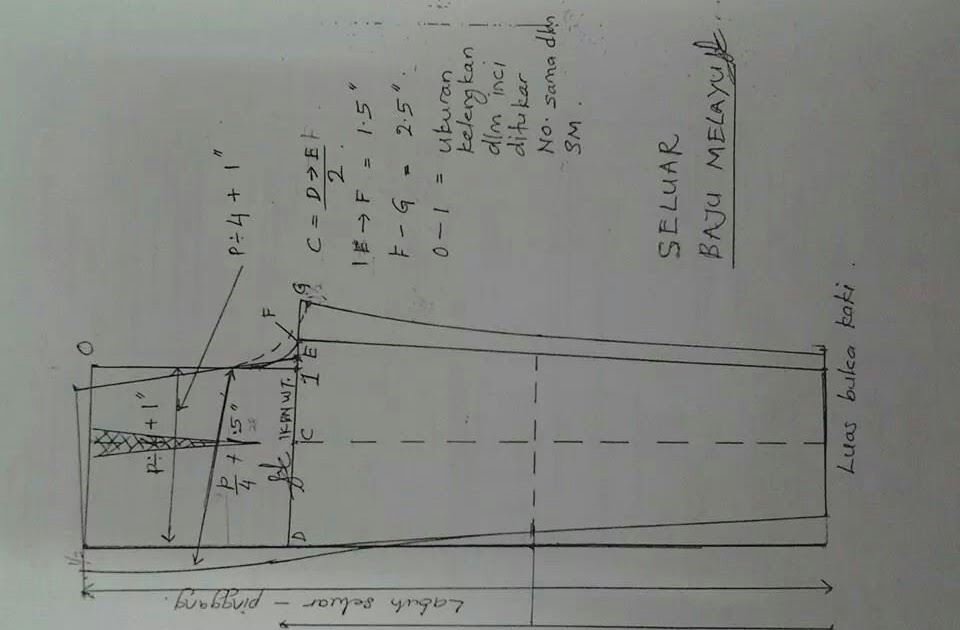 P÷4 + 1"
C = D→E
2
E→F = 1.5"
F-G = 2.5"
0-1 = ukuran
kelengkan
dlm inci
ditukar
No. sama dlm
SM.
SELUAR
BAJU MELAYU
O
1/2
+ 1"
P/4 + 1.5"
D
C
1
E
F
G
Labuh seluar - pinggang.
Luas buka kaki.